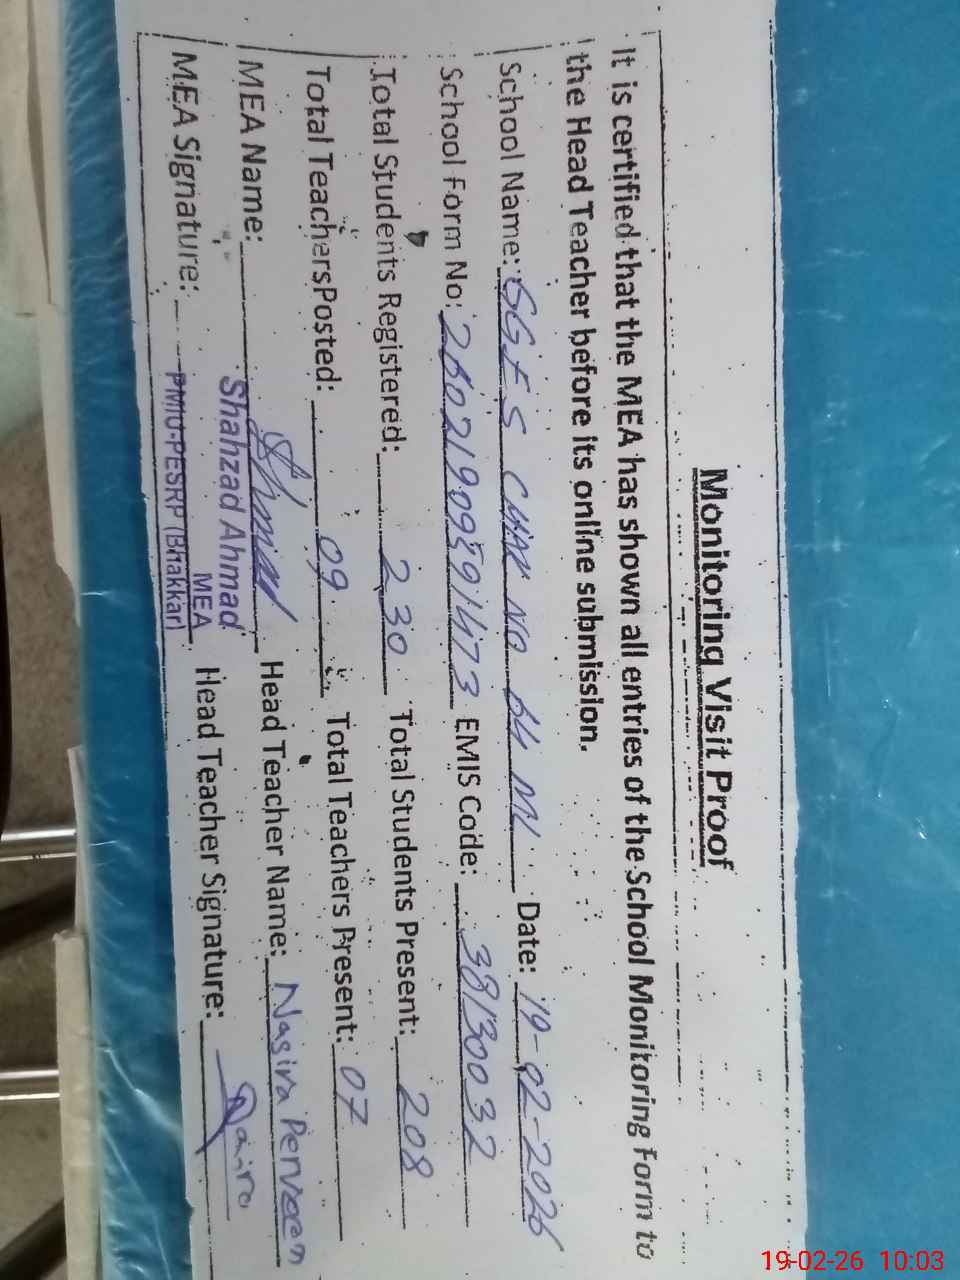 Monitoring Visit Proof
It is certified that the MEA has shown all entries of the School Monitoring Form to
the Head Teacher before its online submission.
School Name: GGES CHAK NO 64 ML Date: 19-02-2026
School Form No: 260219091473 EMIS Code: 38130032
Total Students Registered: 230 Total Students Present: 208
Total Teachers Posted: 09 Total Teachers Present: 07
MEA Name: Head Teacher Name: Nasira Perveen
Shahzad Ahmad
MEA
MEA Signature: PMIU-PESRP (Bhakkar) Head Teacher Signature:
19-02-26 10:03